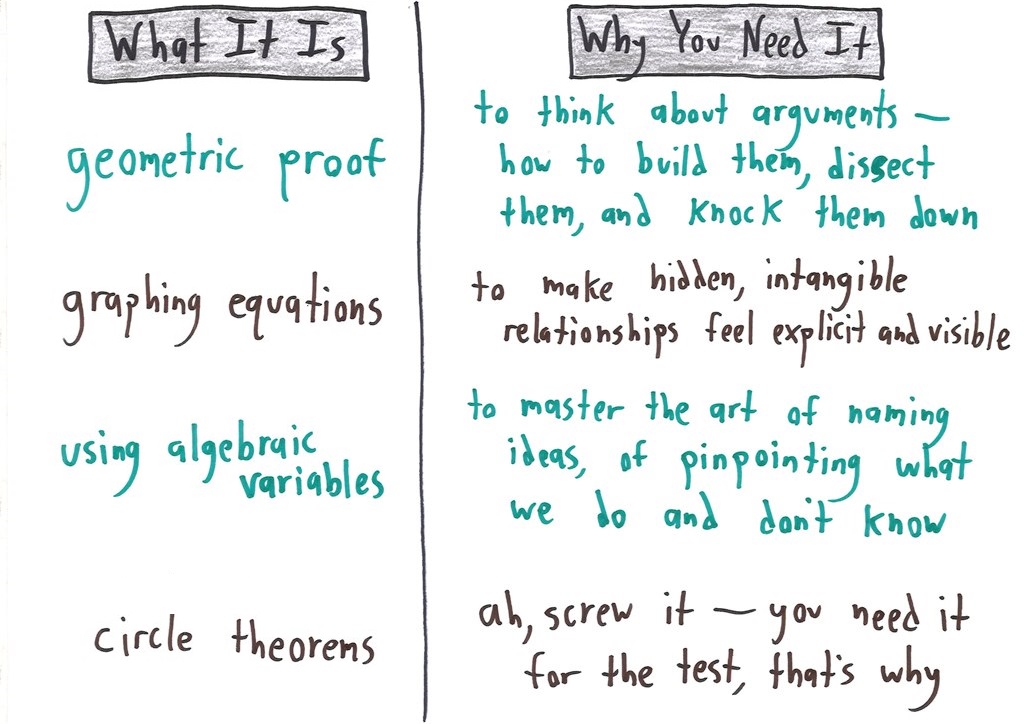 What It Is
Why You Need It
geometric proof
to think about arguments —
how to build them, dissect
them, and knock them down
graphing equations
to make hidden, intangible
relationships feel explicit and visible
using algebraic
variables
to master the art of naming
ideas, of pinpointing what
we do and don't know
circle theorems
ah, screw it — you need it
for the test, that's why